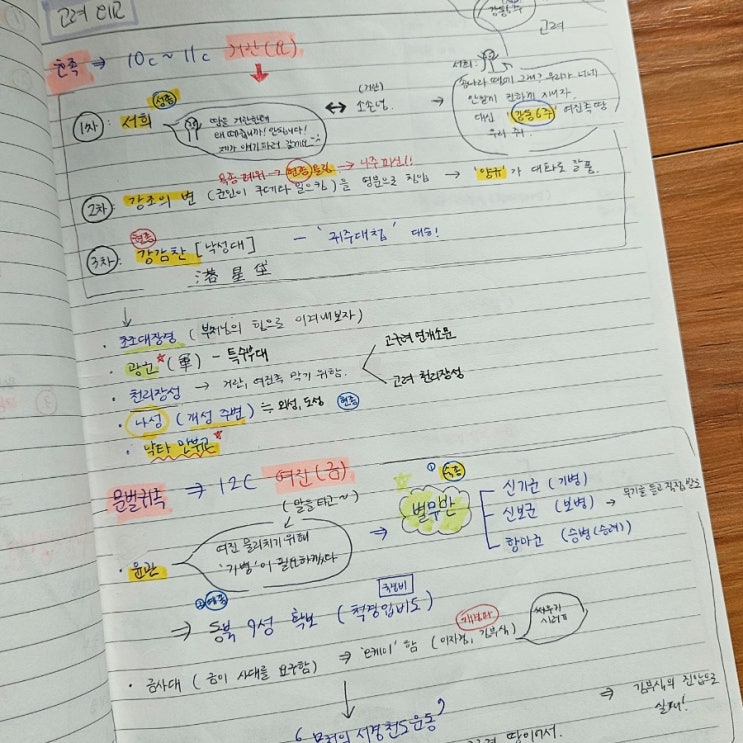 고려 외교
강동6주
고려
호족 ⇒ 10C ~ 11C 거란(요)
성종
(거란)
서희:
1차: 서희
땅을 거란한테
왜 떼줍니까! 안됩니다!
제가 얘기하러 갈게요~
↔ 소손녕. →
송나라 때문에 그래? 우리가 너네
안칠게 친하게 지내자.
대신 '강동6주' 여진족 땅
우리 줘.
목종 폐위 → 현종 옹립 → 나주 피신!
2차: 강조의 변 (군인이 쿠데타 일으킴)을 명분으로 침입 → '양규'가 대파로 활약.
현종
3차: 강감찬 [낙성대] - '귀주대첩' 대승!
落星垈
↓
· 초조대장경 (부처님의 힘으로 이겨내보자)
· 광군☆(軍) - 특수부대
· 천리장성 → 거란, 여진족 막기 위함.
고구려 연개소문
고려 천리장성
· 나성 (개성 주변) ≒ 외성, 도성 현종
· 낙타 만부교☆
문벌귀족 ⇒ 12C 여진(금)
(말을 타군~)
· 윤관
여진 물리치기 위해
'기병'이 필요하겠다
⇒
① 숙종
별무반
신기군 (기병)
신보군 (보병) → 무기를 들고 직접
항마군 (승병(승려))
② 예종
척경비
⇒ 동북 9성 확보 (척경입비도)
· 금사대 (금이 사대를 요구함) ⇒ '오케이' 함 (이자겸, 김부식)
싸우기
시러ㅠ
↓
"묘청의 서경천도운동"
⇒ 김부식의 진압으로
실패!
땅이에서.